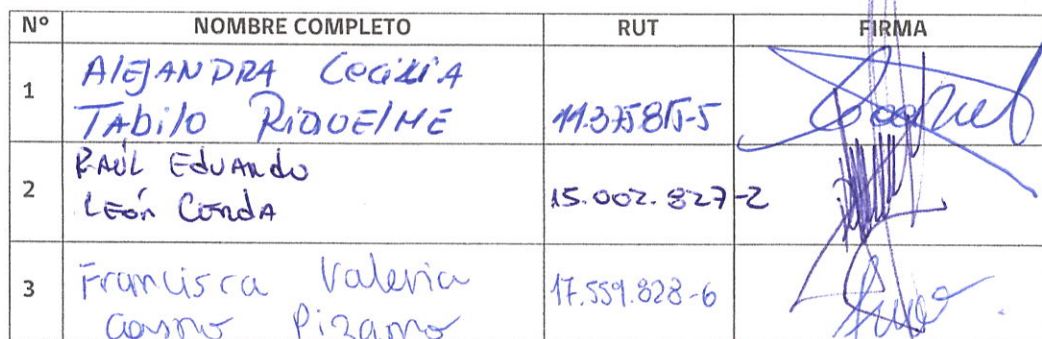 N° NOMBRE COMPLETO RUT FIRMA
1 AlEJANDRA CeciliA
TAbilo RiQUElME 11.375815-5
2 RAÚL EdUARdo
LEón CErdA 15.002.827-2
3 Francisca Valeria
Castro Pizarro 17.559.828-6